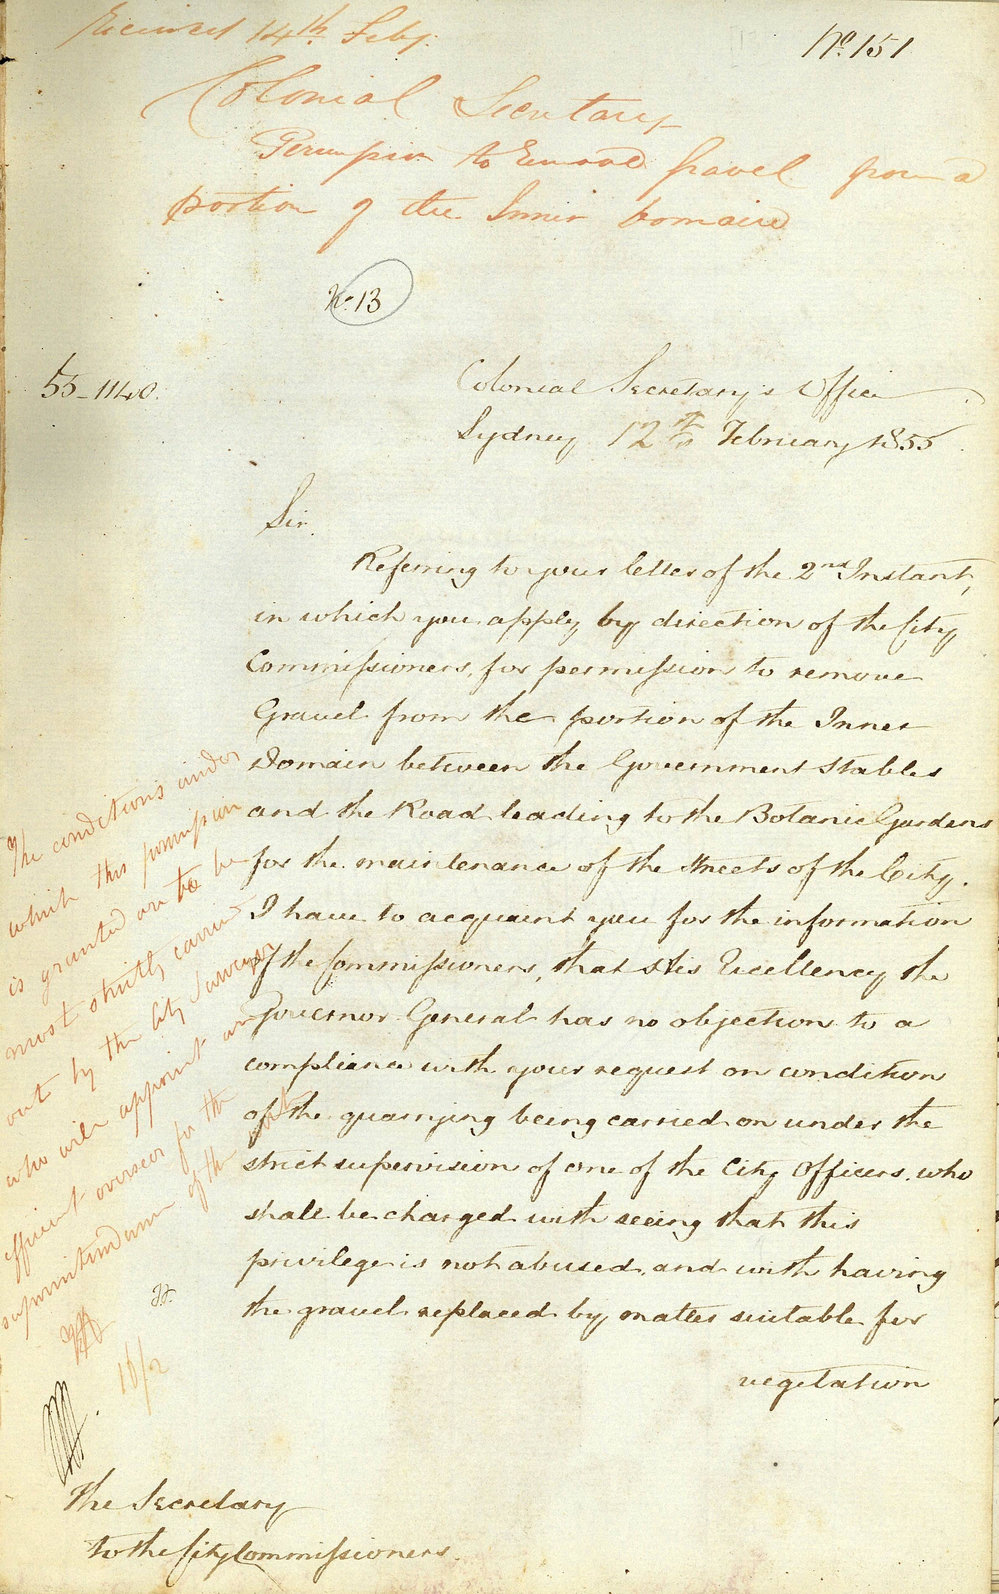 Received 14th Feby.
No. 151
Colonial Secretary
Permission to remove Gravel from a
portion of the Inner Domain
No. 13
55-1140.
Colonial Secretary's Office
Sydney 12th February 1855.
Sir,
Referring to your letter of the 2nd Instant,
in which you apply, by direction of the City
Commissioners, for permission to remove
Gravel from the portion of the Inner
Domain between the Government Stables
and the Road leading to the Botanic Gardens
for the maintenance of the streets of the City.
I have to acquaint you for the information
of the Commissioners, that His Excellency the
Governor General has no objection to a
compliance with your request on condition
of the quarrying being carried on under the
strict supervision of one of the City Officers, who
shall be charged with seeing that this
privilege is not abused, and with having
the gravel replaced by matter suitable for
vegetation
The conditions under
which this permission
is granted are to be
most strictly carried
out by the City Surveyor
who will appoint an
efficient overseer for the
superintendence of the work
16/2
The Secretary
to the City Commissioners.